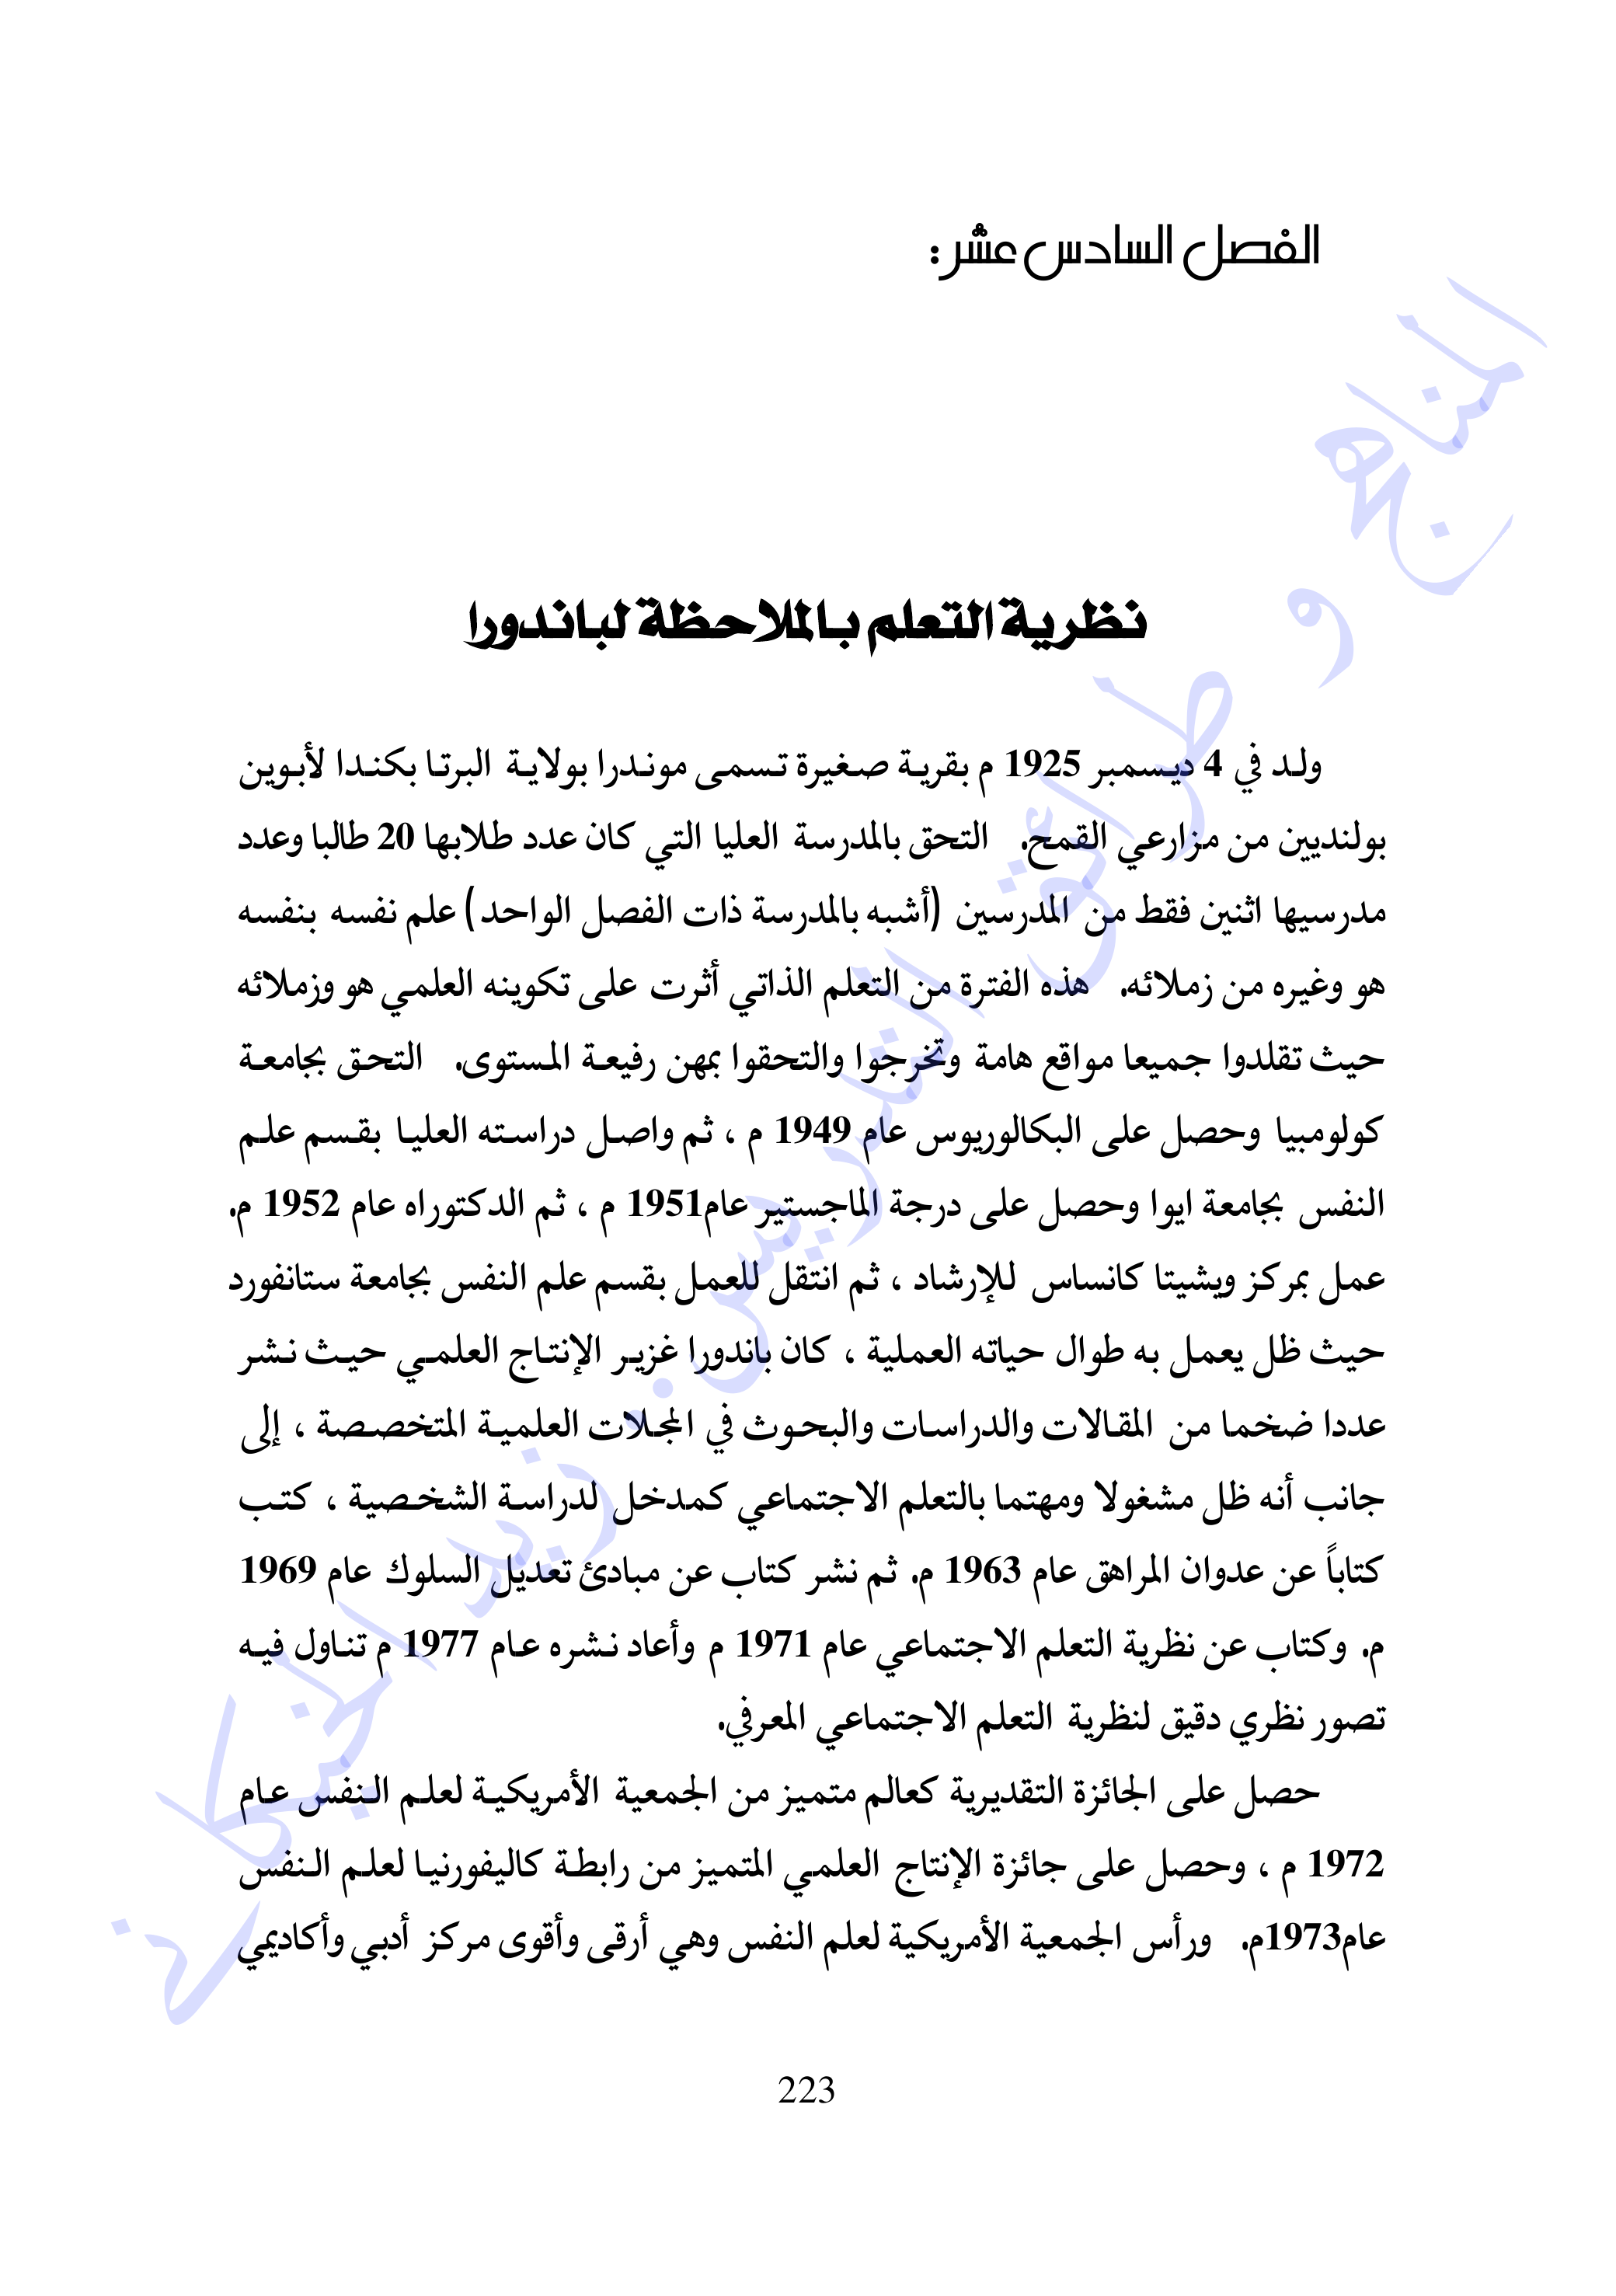 الفصل السادس عشر:
نظرية التعلم بالملاحظة لباندورا
ولد في 4 ديسمبر 1925 م بقرية صغيرة تسمى موندرا بولاية البرتا بكندا لأبوين
بولنديين من مزارعي القمح. التحق بالمدرسة العليا التي كان عدد طلابها 20 طالبا وعدد
مدرسيها اثنين فقط من المدرسين (أشبه بالمدرسة ذات الفصل الواحد) علم نفسه بنفسه
هو وغيره من زملائه. هذه الفترة من التعلم الذاتي أثرت على تكوينه العلمي هو وزملائه
حيث تقلدوا جميعا مواقع هامة وتخرجوا والتحقوا بمهن رفيعة المستوى. التحق بجامعة
كولومبيا وحصل على البكالوريوس عام 1949 م ، ثم واصل دراسته العليا بقسم علم
النفس بجامعة ايوا وحصل على درجة الماجستير عام1951 م ، ثم الدكتوراه عام 1952 م.
عمل بمركز ويشيتا كانساس للإرشاد ، ثم انتقل للعمل بقسم علم النفس بجامعة ستانفورد
حيث ظل يعمل به طوال حياته العملية ، كان باندورا غزير الإنتاج العلمي حيث نشر
عددا ضخما من المقالات والدراسات والبحوث في المجلات العلمية المتخصصة ، إلى
جانب أنه ظل مشغولا ومهتما بالتعلم الاجتماعي كمدخل لدراسة الشخصية ، كتب
كتاباً عن عدوان المراهق عام 1963 م. ثم نشر كتاب عن مبادئ تعديل السلوك عام 1969
م. وكتاب عن نظرية التعلم الاجتماعي عام 1971 م وأعاد نشره عام 1977 م تناول فيه
تصور نظري دقيق لنظرية التعلم الاجتماعي المعرفي.
حصل على الجائزة التقديرية كعالم متميز من الجمعية الأمريكية لعلم النفس عام
1972 م ، وحصل على جائزة الإنتاج العلمي المتميز من رابطة كاليفورنيا لعلم النفس
عام1973م. ورأس الجمعية الأمريكية لعلم النفس وهي أرقى وأقوى مركز أدبي وأكاديمي
223
المناهج و طرائق التدريس. زيد الخيكاني